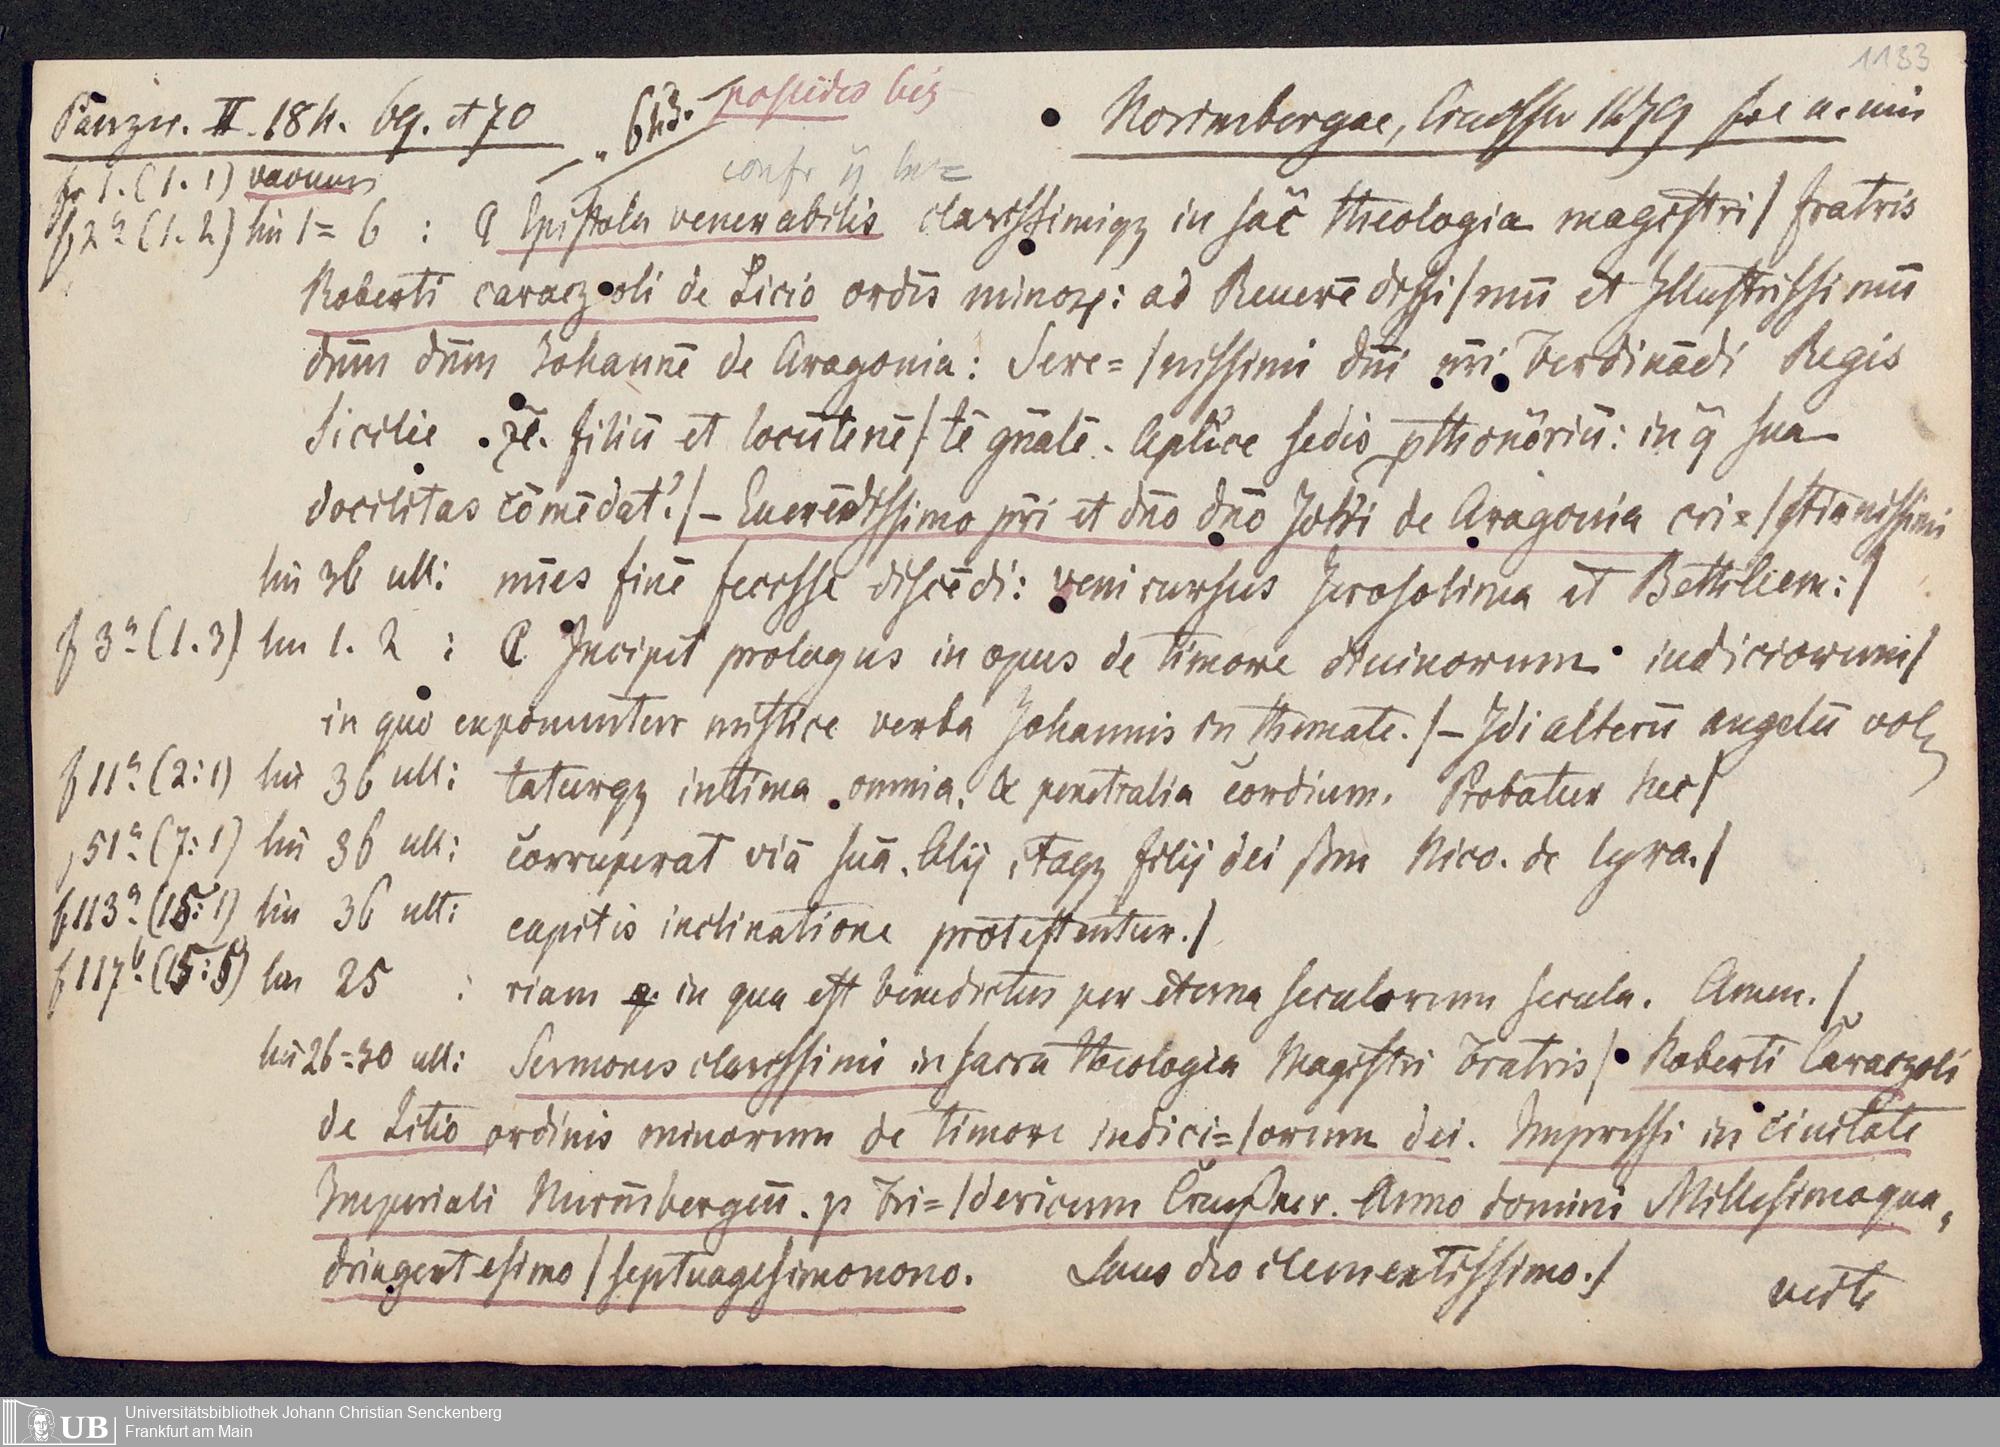 1133
Panzer. II. 184. 69. et 70 643. possideo bis Norimbergae, Creussner 1479 fol
f. 1. (1. 1) vacuum
f 2ª (1. 2) lin 1=6 : ₵ Epistola venerabilis clarissimiqȝ in sac̄ theologia magistri/ fratris
Roberti caraczoli de Licio ordīs minoꝝ: ad Reuerēdissi/mū et Illustrissimū
dn̄m dn̄m Johannē de Aragonia: Sere=/nissimi dn̄i nr̄i Ferdinādi Regis
Sicilie .ꝛc̄. filiū et locūtenē/tē gn̄alē. Aplīce sedis ꝓthonōriū: in q̄ sua
docilitas cōmēdat'./ – Euerēdissimo pr̄i et dn̄o dn̄o Joh̄i de Aragonia cri=/stianissimi
lin 36 ult: mīes finē fecisse discēdi: veni rursus Jerosolima et Bethleem:/
f 3ª (1. 3) lin 1. 2 : ₵ Incipit prologus in opus de timore diuinorum iudiciorum/
in quo exponuntur mistice verba Johannis in themate./ – Idi alterū angelū vol
f 11ª (2: 1) lin 36 ult: taturqȝ intima omnia. & penetralia cordium. Probatur hec/
51ª (7: 1) lin 36 ult: corruperat viā suā. Alij, itaqȝ filij dei sm Nico. de lyra./
f 113ª (15: 1) lin 36 ult: capitis inclinatione protestentur./
f 117b (15: 5) lin 25 : riam in qua est benedictus per eterna seculorum secula. Amen./
lin 26=30 ult: Sermones clarissimi in sacra theologia Magistri Fratris/ Roberti Caraczoli
de Litio ordinis minorum de timore iudici=/orum dei. Impressi in ciuitate
Imperiali Nurm̄bergen̄. ꝑ Fri=/dericum Creusner. Anno domini Millesimoqua,
dringentesimo/septuagesimonono. Laus deo clementissimo./ verte
UB Universitätsbibliothek Johann Christian Senckenberg
Frankfurt am Main